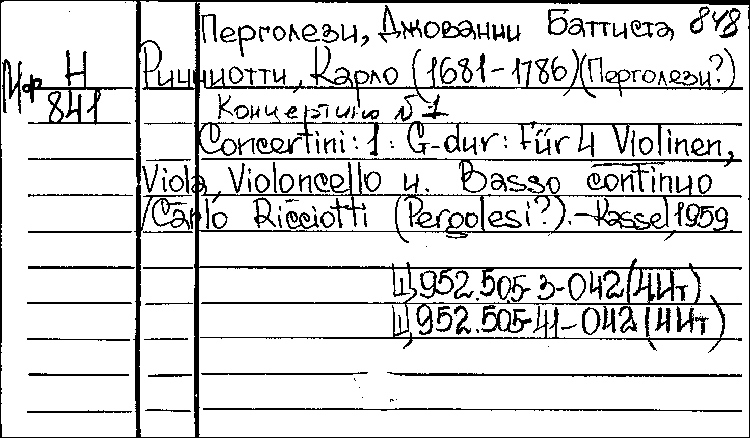 Перголези, Джованни Баттиста 848
Н Риччиотти, Карло (1681-1786) (Перголези?)
841 Концертино №1
Concertini: 1: G-dur: Für 4 Violinen,
Viola, Violoncello u. Basso continuo
/Carlo Ricciotti (Pergolesi?).-Kassel,1959
Ц952.505-3-042(4Ит)
Ц952.505-41-042(4Ит)